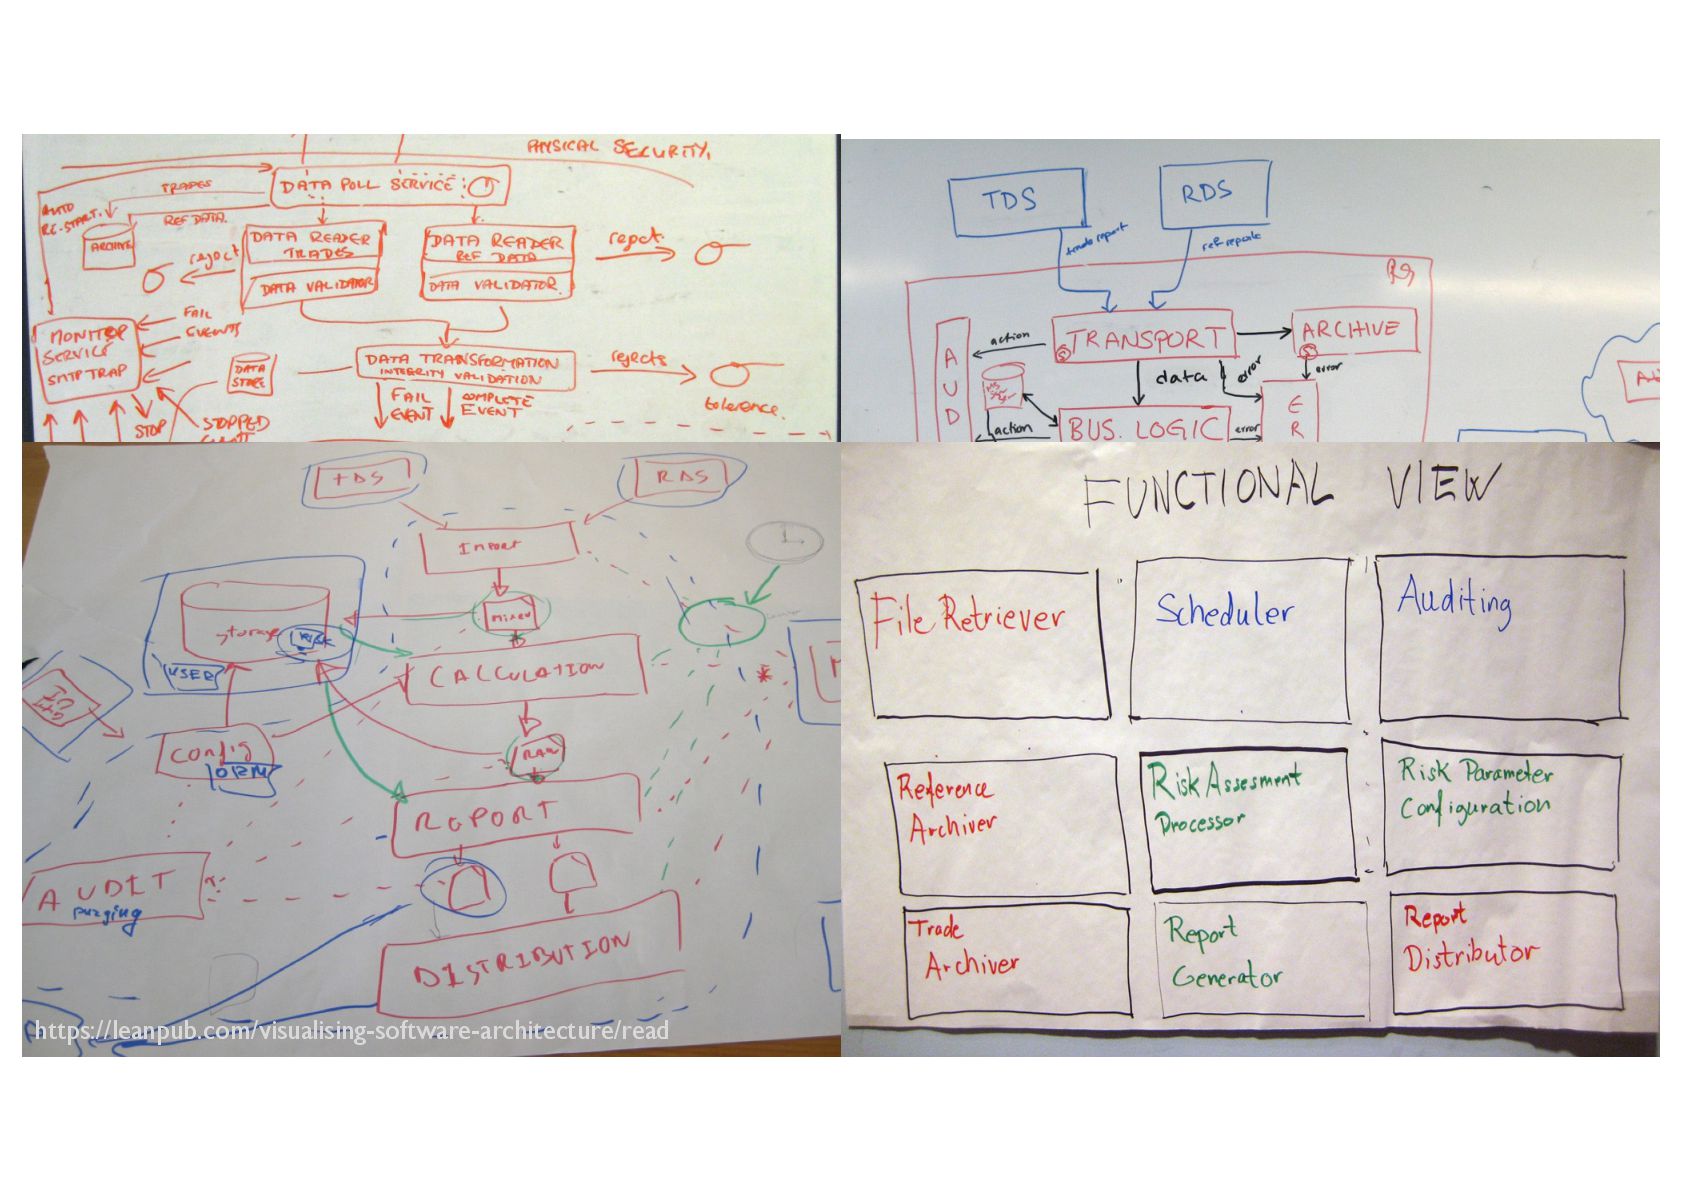 PHYSICAL SECURITY.
DATA POLL SERVICE
TRADES
REF DATA.
AUTO
RE-START.
ARCHIVE
DATA READER
TRADES
DATA VALIDATOR
DATA READER
REF DATA
DATA VALIDATOR
reject
reject.
FAIL
EVENTS
MONITOR
SERVICE
SMTP TRAP
DATA
STORE
DATA TRANSFORMATION
INTEGRITY VALIDATION
rejects
tolerence.
FAIL
EVENT
COMPLETE
EVENT
STOP
STOPPED
TDS
RDS
trade report
ref reports
RS
AUD
action
TRANSPORT
ARCHIVE
data
error
error
action
BUS. LOGIC
error
ER
TDS
RDS
IMPORT
MIXED
storage
RISK
USER
CALCULATION
RAW
CONFIG
ORM
REPORT
AUDIT
purging
DISTRIBUTION
https://leanpub.com/visualising-software-architecture/read
FUNCTIONAL VIEW
File Retriever
Scheduler
Auditing
Reference
Archiver
Risk Assesment
Processor
Risk Parameter
Configuration
Trade
Archiver
Report
Generator
Report
Distributor